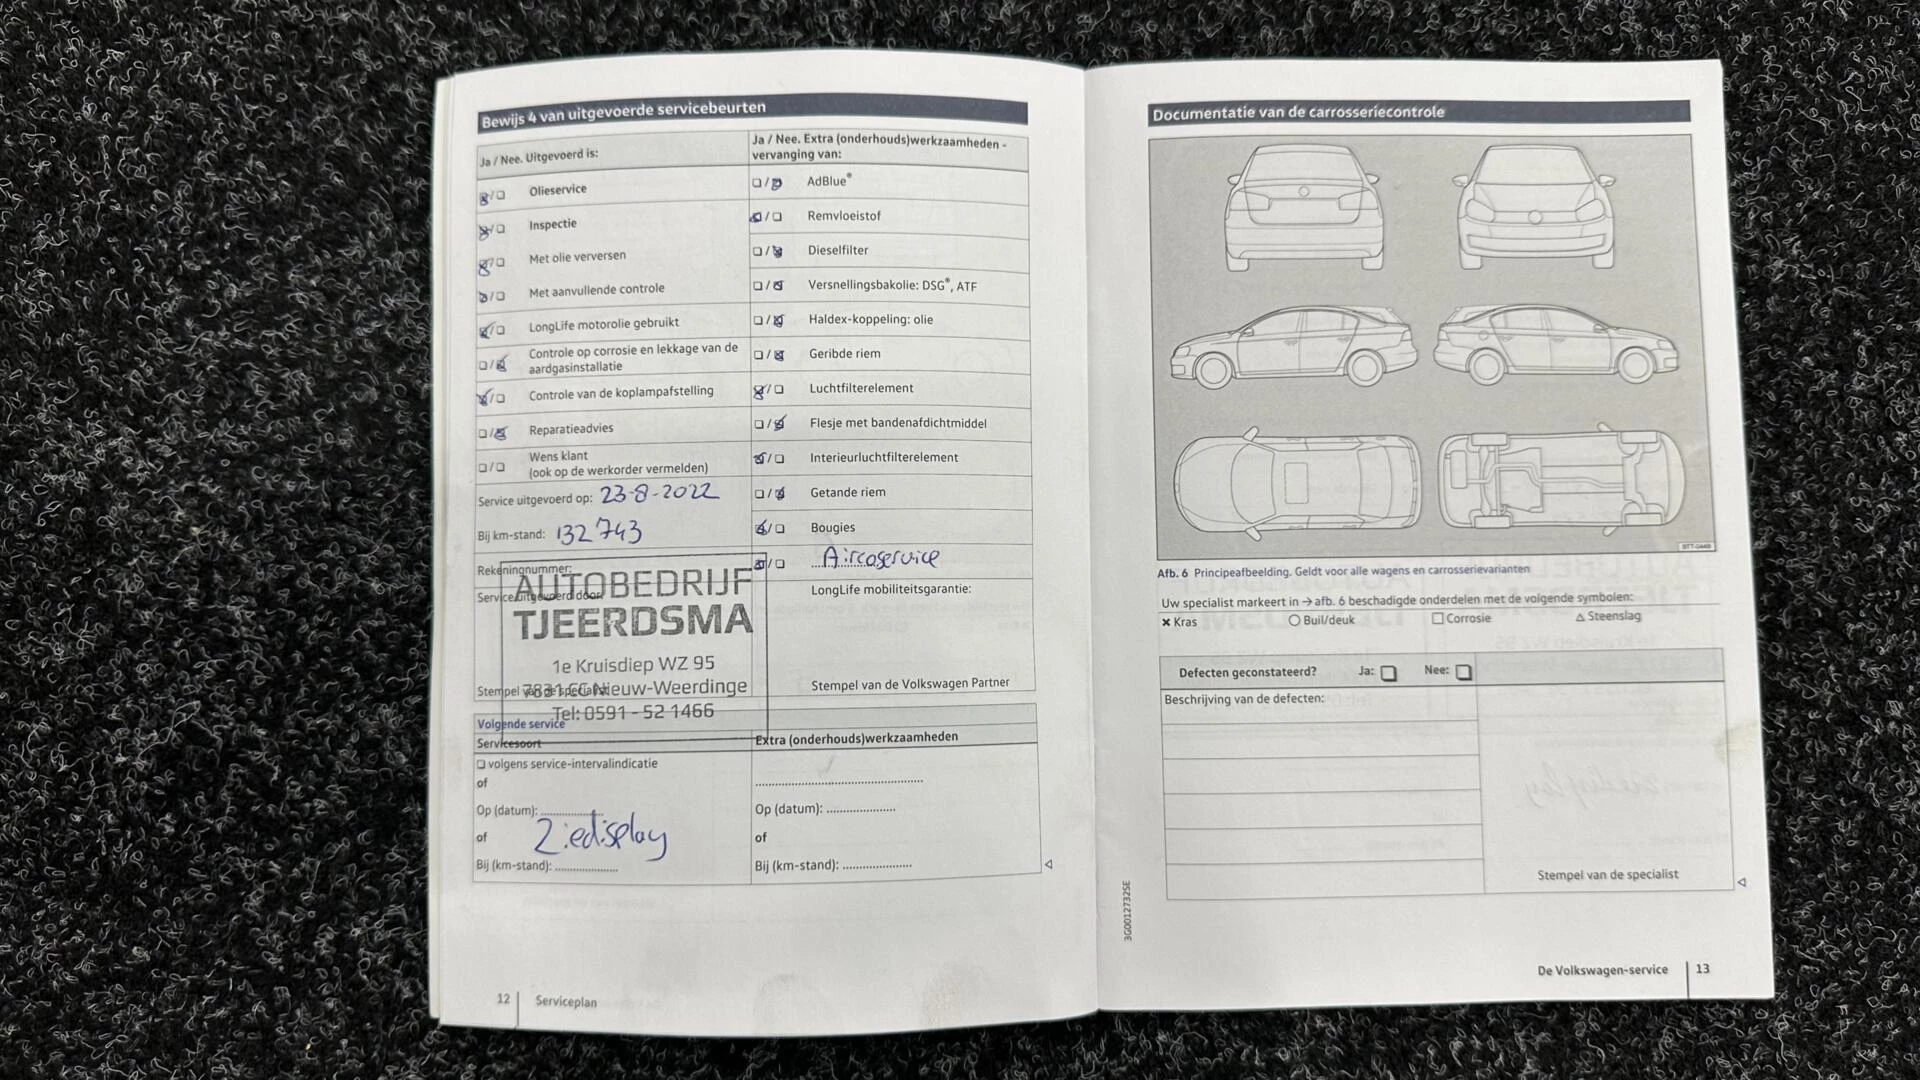 Bewijs 4 van uitgevoerde servicebeurten
Ja / Nee. Uitgevoerd is:
☒/☐ Olieservice
☒/☐ Inspectie
☒/☐ Met olie verversen
☒/☐ Met aanvullende controle
☒/☐ LongLife motorolie gebruikt
☐/☒ Controle op corrosie en lekkage van de
aardgasinstallatie
☒/☐ Controle van de koplampafstelling
☐/☒ Reparatieadvies
☐/☐ Wens klant
(ook op de werkorder vermelden)
Service uitgevoerd op: 23-8-2022
Bij km-stand: 132743
Rekeningnummer:
Service uitgevoerd door:
AUTOBEDRIJF
TJEERDSMA
1e Kruisdiep WZ 95
Nieuw-Weerdinge
Tel: 0591 - 52 1466
Stempel van de specialist
Ja / Nee. Extra (onderhouds)werkzaamheden -
vervanging van:
☐/☒ AdBlue®
☒/☐ Remvloeistof
☐/☒ Dieselfilter
☐/☒ Versnellingsbakolie: DSG®, ATF
☐/☒ Haldex-koppeling: olie
☐/☒ Geribde riem
☒/☐ Luchtfilterelement
☐/☒ Flesje met bandenafdichtmiddel
☒/☐ Interieurluchtfilterelement
☐/☒ Getande riem
☒/☐ Bougies
☒/☐ Aircoservice
LongLife mobiliteitsgarantie:
Stempel van de Volkswagen Partner
Volgende service
Servicesoort
☐ volgens service-intervalindicatie
of
Op (datum): ....................
of
Ziedisplay
Bij (km-stand): ....................
Extra (onderhouds)werkzaamheden
..................................................
Op (datum): ....................
of
Bij (km-stand): ....................
12 Serviceplan
Documentatie van de carrosseriecontrole
BTT-0449
Afb. 6 Principeafbeelding. Geldt voor alle wagens en carrosserievarianten
Uw specialist markeert in → afb. 6 beschadigde onderdelen met de volgende symbolen:
✖ Kras ○ Buil/deuk □ Corrosie △ Steenslag
Defecten geconstateerd? Ja: ☐ Nee: ☐
Beschrijving van de defecten:
Stempel van de specialist
3G0012732SE
De Volkswagen-service 13